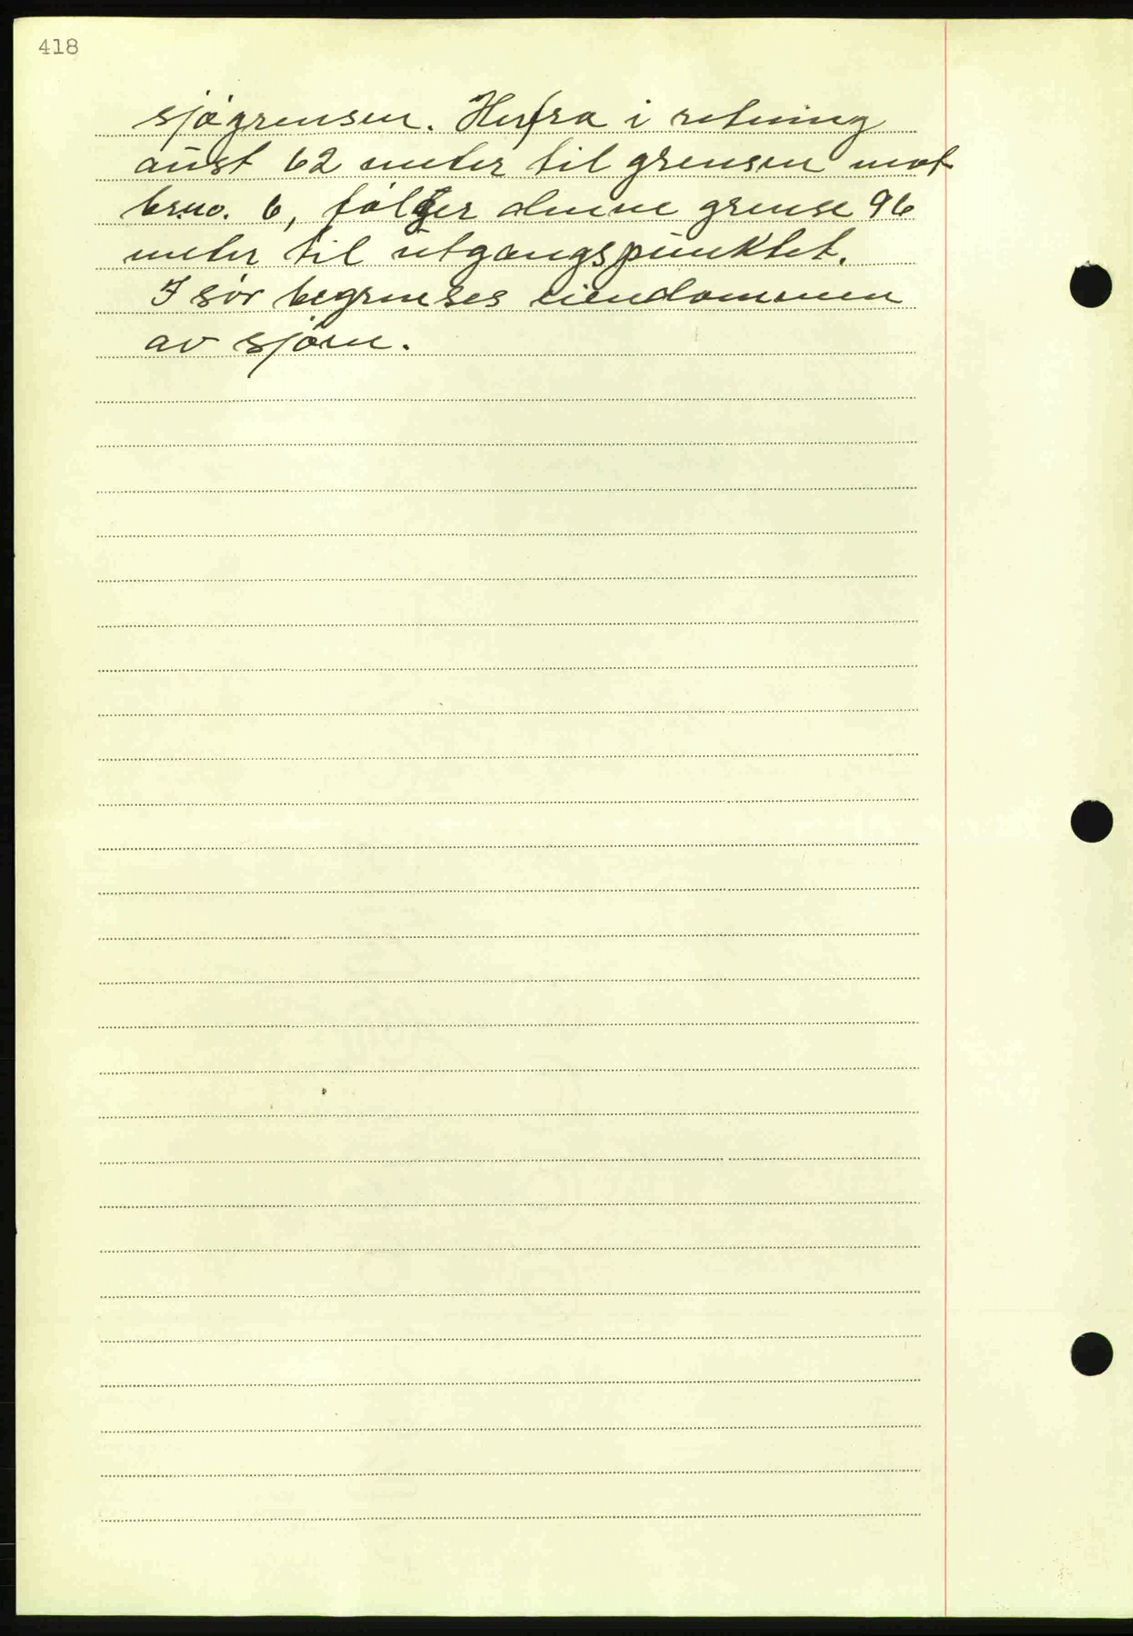 418
sjøgrensen. Herfra i retning
aust 62 meter til grensen mot
brno. 6, følger denne grense 96
meter til utgangspunktet.
I sør begrenses eiendommen
av sjøen.